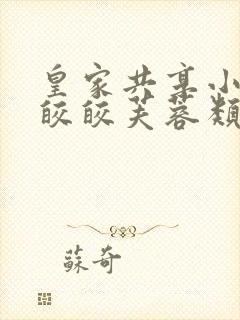 皇家共享小
皎皎芙蓉類
蘇奇